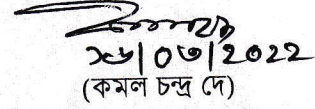 ১৬|০৩|2022
(কমল চন্দ্র দে)